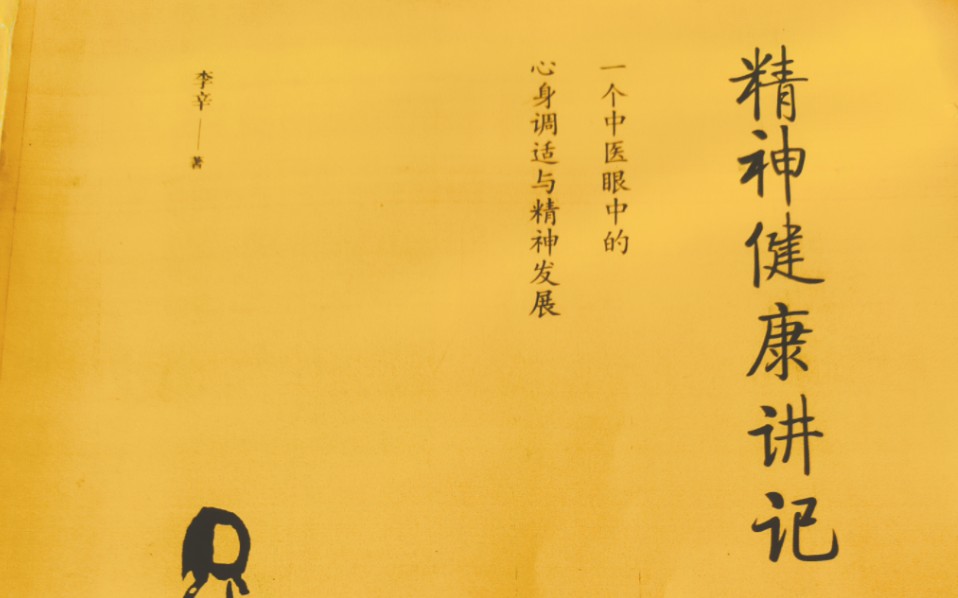 精神健康讲记
一个中医眼中的
心身调适与精神发展
李辛——著